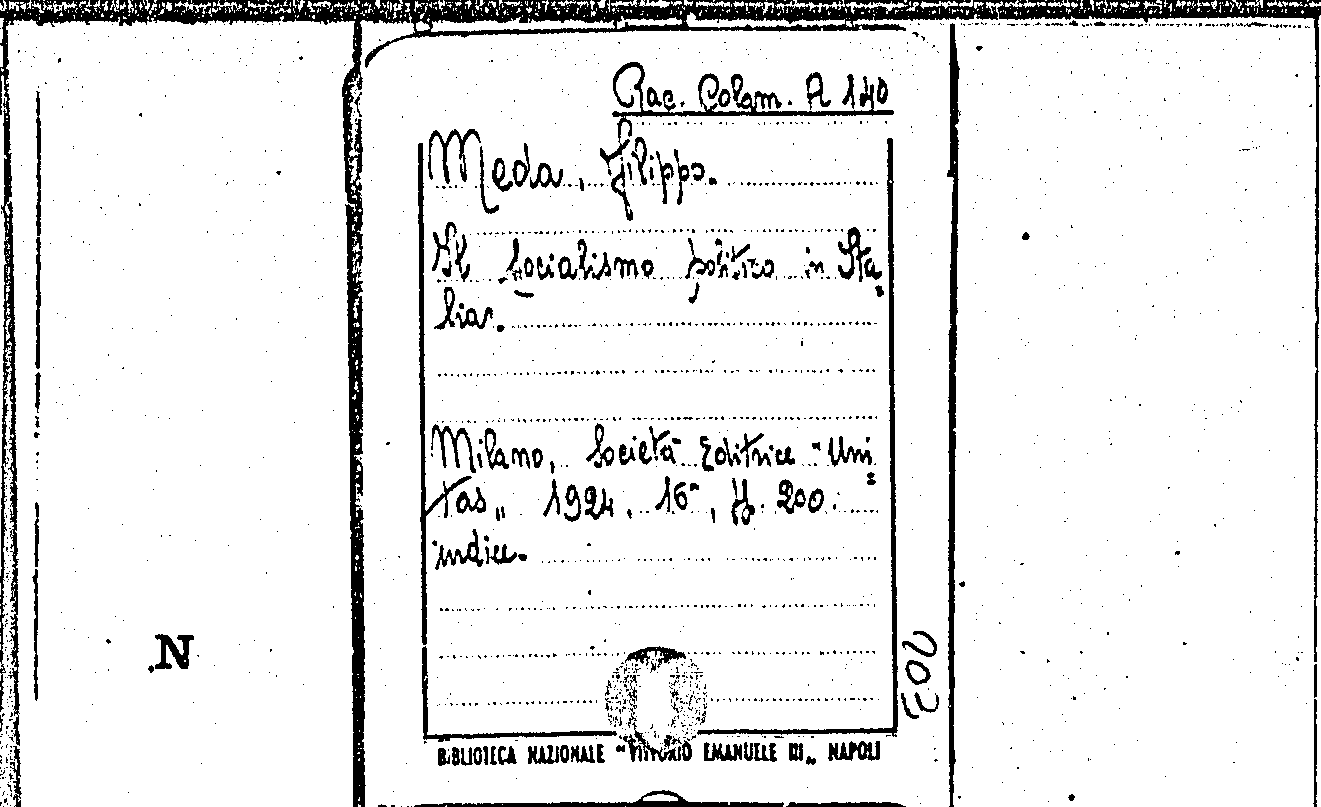 Rac. Colam. A 140
Meda, Filippo.
Il socialismo politico in Ita=
lia.
Milano, Società Editrice "Uni=
tas„ 1924. 16°, pp. 200.
indice.
N
203
BIBLIOTECA NAZIONALE "VITTORIO EMANUELE III„ NAPOLI